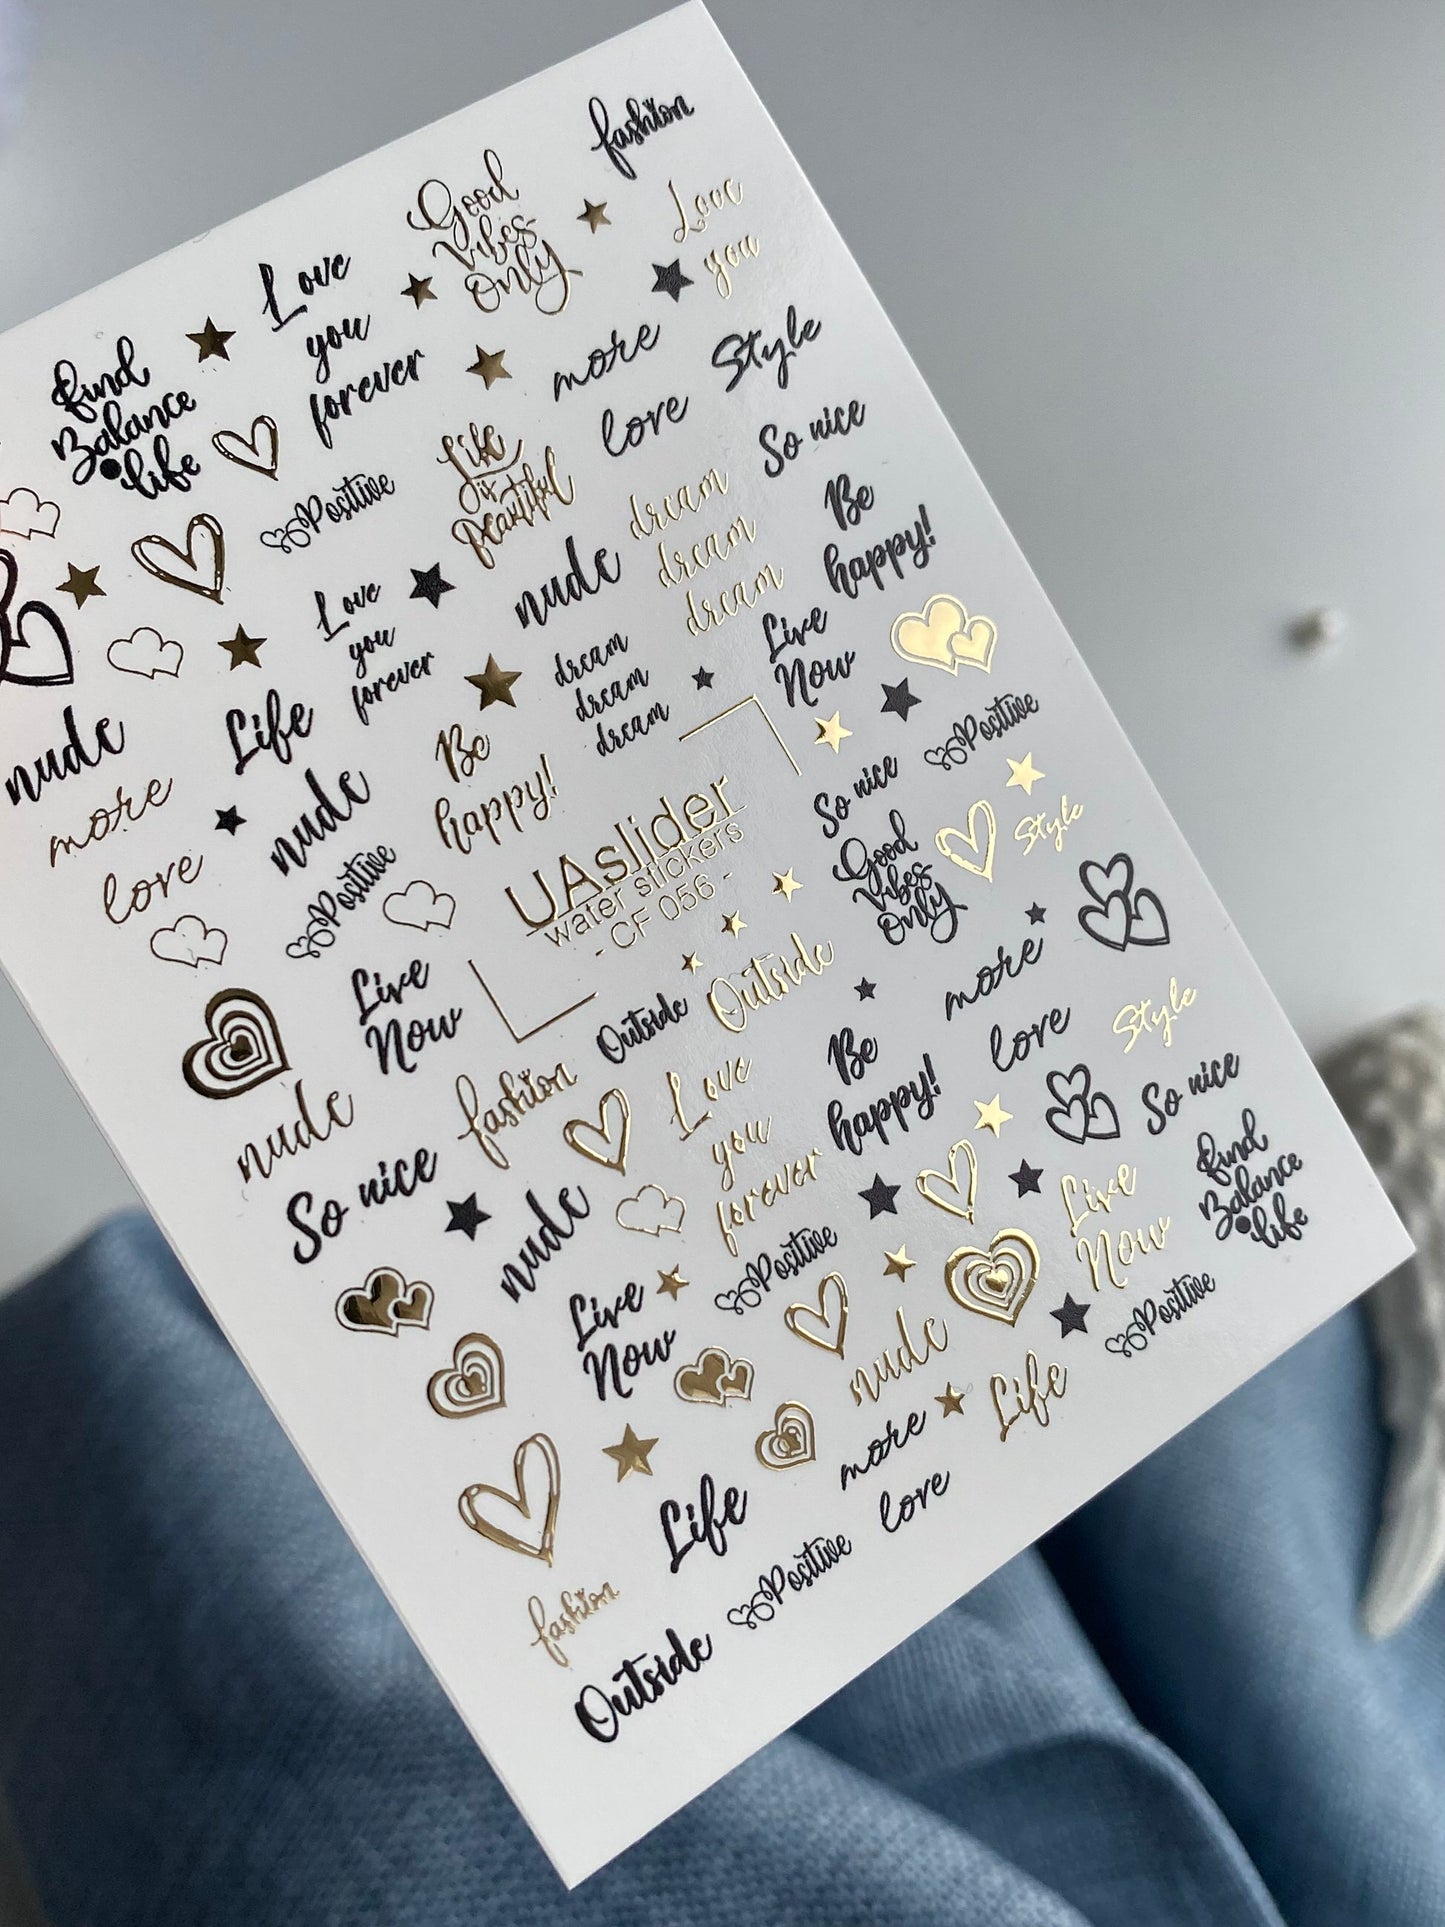 fashion
Good
Vibes
Only
Love
you
Love
you
forever
find
Balance
life
more
love
Style
So nice
Positive
Life
is
Beautiful
dream
dream
dream
Be
happy!
Love
you
forever
nude
dream
dream
dream
Live
Now
nude
Life
Be
happy!
Positive
more
love
nude
Positive
UAslider
water stickers
- CF 056 -
So nice
Good
Vibes
Only
Style
Live
Now
Outside
Outside
more
love
Style
nude
fashion
Love
you
forever
Be
happy!
So nice
So nice
nude
Live
Now
find
Balance
life
Live
Now
Positive
Positive
nude
Life
more
love
Life
Positive
fashion
Outside